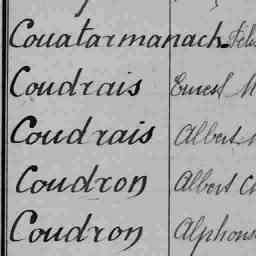 Couatarmanach
Coudrais Ernest
Coudrais Albert
Coudron Albert
Coudron Alphons